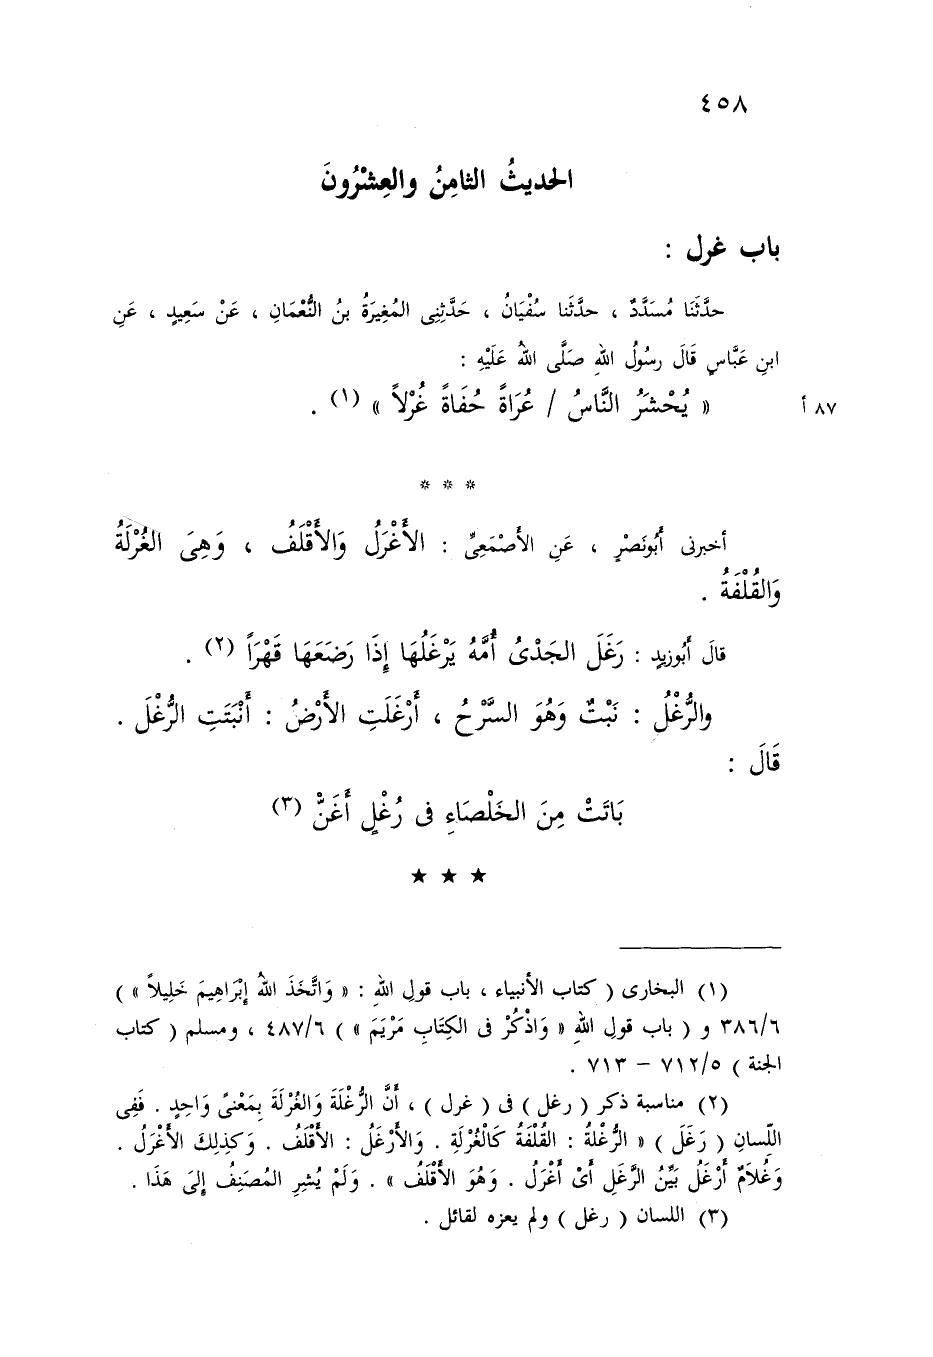 ٤٥٨
الحديثُ الثامِنُ والعِشْرُونَ
باب غرل :
حدَّثَنَا مُسَدَّدٌ ، حدَّثَنا سُفْيَانُ ، حَدَّثِنِى المُغِيرَةُ بنُ النُّعْمَانِ ، عَنْ سَعِيدٍ ، عَنِ
ابنِ عَبَّاسٍ قَالَ رسولُ اللهِ صَلَّى اللهُ عَلَيْهِ :
« يُحْشَرُ النَّاسُ / عُرَاةً حُفَاةً غُرْلاً » (١) .
٨٧ أ
* * *
أخبرنى أَبُونَصْرٍ ، عَنِ الأَصْمَعِىِّ : الأَغْرَلُ وَالأَقْلَفُ ، وَهِىَ الغُرْلَةُ
وَالقُلْفَةُ .
قالَ أَبُوزيدٍ : رَغَلَ الجَدْىُ أُمَّهُ يَرْغَلُهَا إِذَا رَضَعَهَا قَهْرَاً (٢) .
والرُّغْلُ : نَبْتٌ وَهُوَ السَّرْحُ ، أَرْغَلَتِ الأَرْضُ : أَنْبَتَتِ الرُّغْلَ .
قَالَ :
بَاتَتْ مِنَ الخَلْصَاءِ فى رُغْلٍ أَغَنّْ (٣)
★ ★ ★
(١) البخارى ( كتاب الأنبياء ، باب قولِ اللهِ : « وَاتَّخَذَ اللهُ إِبْرَاهِيمَ خَلِيلاً » )
٣٨٦/٦ و ( باب قول اللهِ « وَاذْكُرْ فى الكِتَابِ مَرْيَمَ » ) ٤٨٧/٦ ، ومسلم ( كتاب
الجنة ) ٧١٢/٥ – ٧١٣ .
(٢) مناسبة ذكر ( رغل ) فى ( غرل ) ، أَنَّ الرُّغْلَةَ وَالغُرْلَةَ بِمَعْنىً وَاحِدٍ . فَفِى
اللِّسانِ ( رَغَلَ ) « الرُّغْلةُ : القُلْفَةُ كَالْغُرْلَةِ . وَالأَرْغَلُ : الأَقْلَفُ . وَكذلِكَ الأَغْرَلُ .
وَغُلاَمٌ أَرْغَلُ بَيِّنُ الرَّغَلِ أَىْ أَغْرَلُ . وَهُوَ الأَقْلَفُ » . وَلَمْ يُشِرِ المُصَنِفُ إِلىَ هَذَا .
(٣) اللسان ( رغل ) ولم يعزه لقائل .